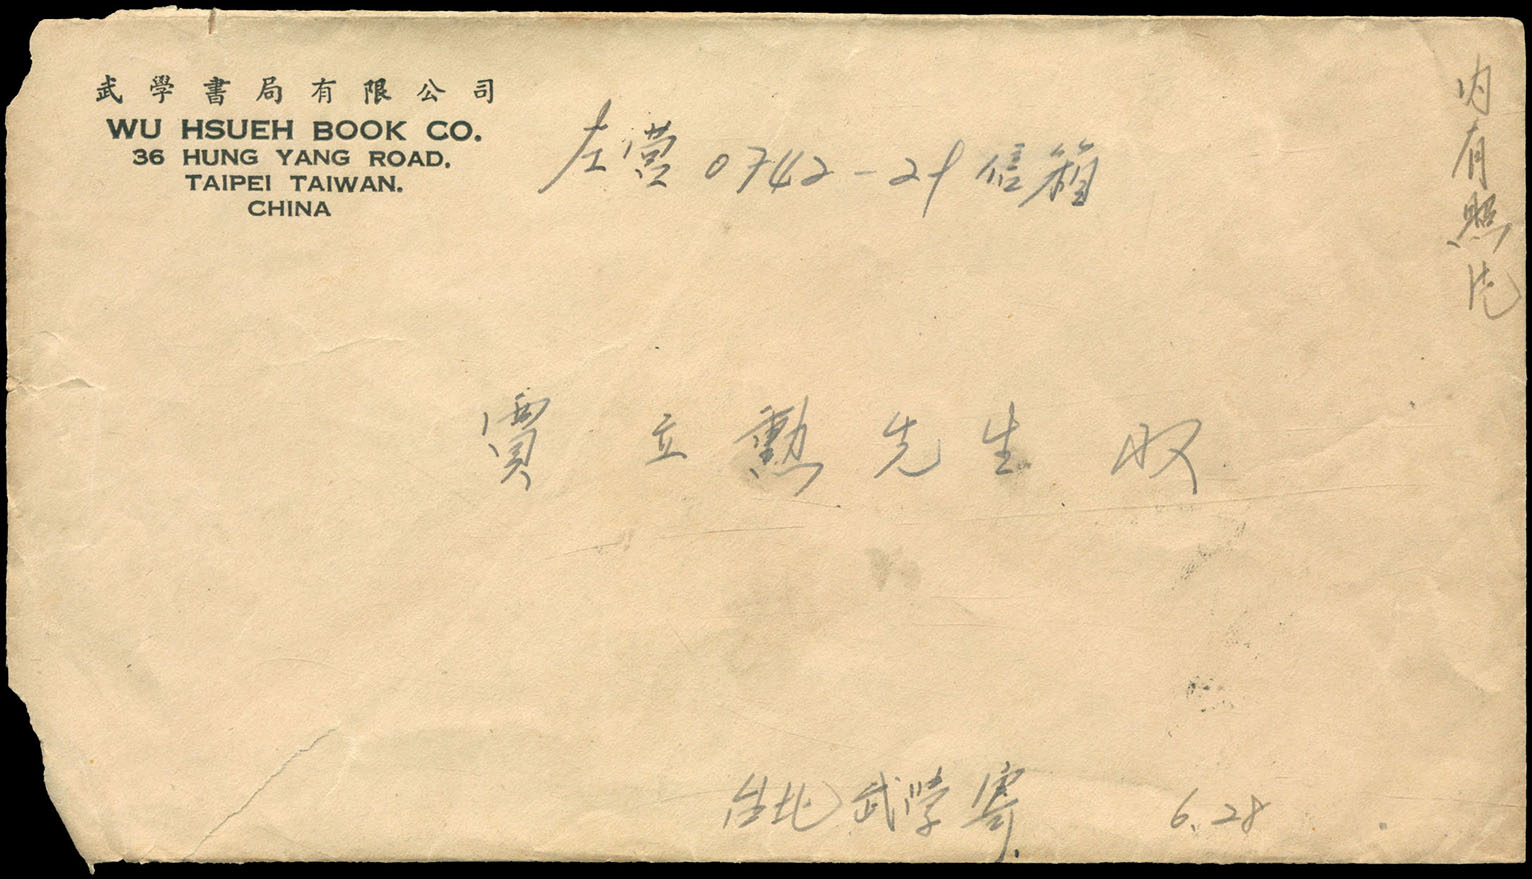 武學書局有限公司
WU HSUEH BOOK CO.
36 HUNG YANG ROAD,
TAIPEI TAIWAN.
CHINA
左營0742-21信箱
內有照片
賈立勳先生收
台北武学寄
6.28